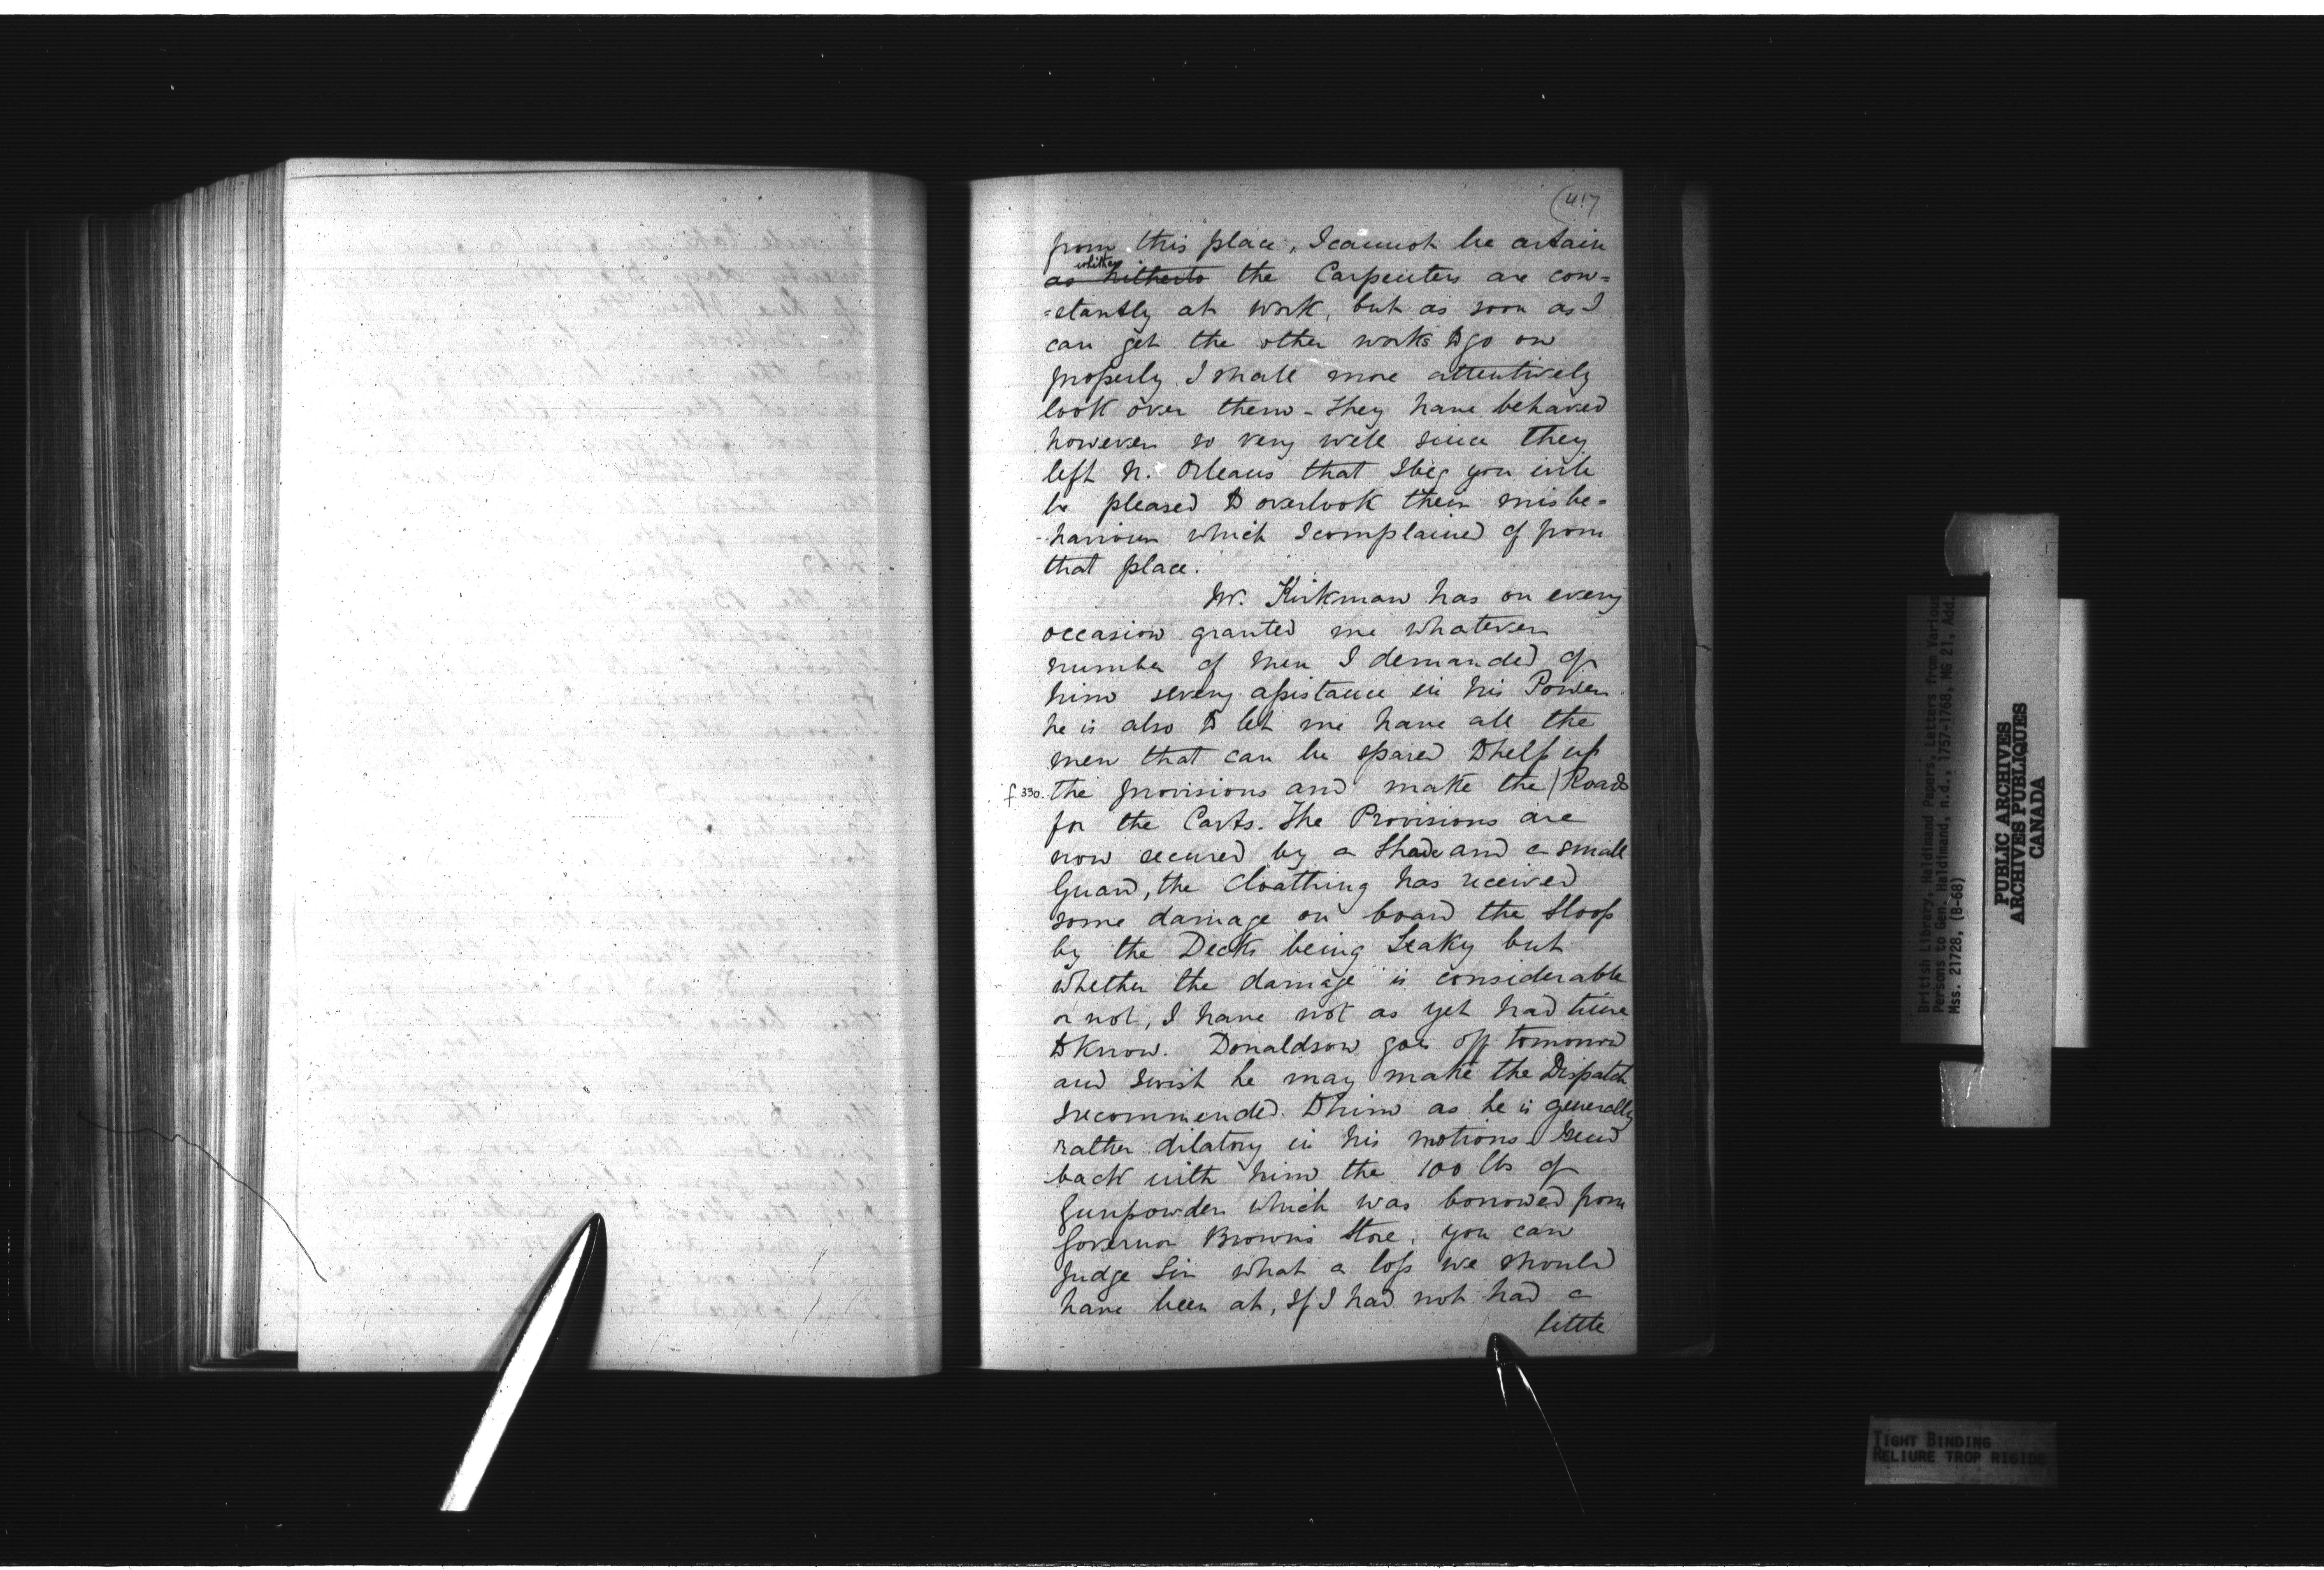 (417
from this place, I cannot be certain
whither
as hitherto the Carpenters are con=
=stantly at work, but as soon as I
can get the other works to go on
properly I shall more attentively
look over them - They have behaved
however so very well since they
left N. Orleans that I beg you will
be pleased to overlook their misbe=
-haviour which I complained of from
that place.
Mr. Kirkman has on every
occasion granted me whatever
number of Men I demanded of
him & every assistance in his Power.
he is also to let me have all the
men that can be spared to help up
f 330. the provisions and make the / Roads
for the Carts. The Provisions are
now secured by a Shade and a small
Guard, the Cloathing has received
some damage on board the Sloop
by the Decks being Leaky but
whether the damage is considerable
or not, I have not as yet had time
to know. Donaldson goes off tomorrow
and I wish he may make the Dispatch
I recommended to him as he is generally
rather dilatory in his motions. I send
back with him the 100 lbs of
Gunpowder which was borrowed from
Governor Browns Store; you can
judge Sir what a loss we should
have been at, If I had not had a
little
British Library, Haldimand Papers, Letters from Various
Persons to Gen. Haldimand, n.d., 1757-1768, MG 21, Add.
Mss. 21728, (B-68)
PUBLIC ARCHIVES
ARCHIVES PUBLIQUES
CANADA
TIGHT BINDING
RELIURE TROP RIGIDE